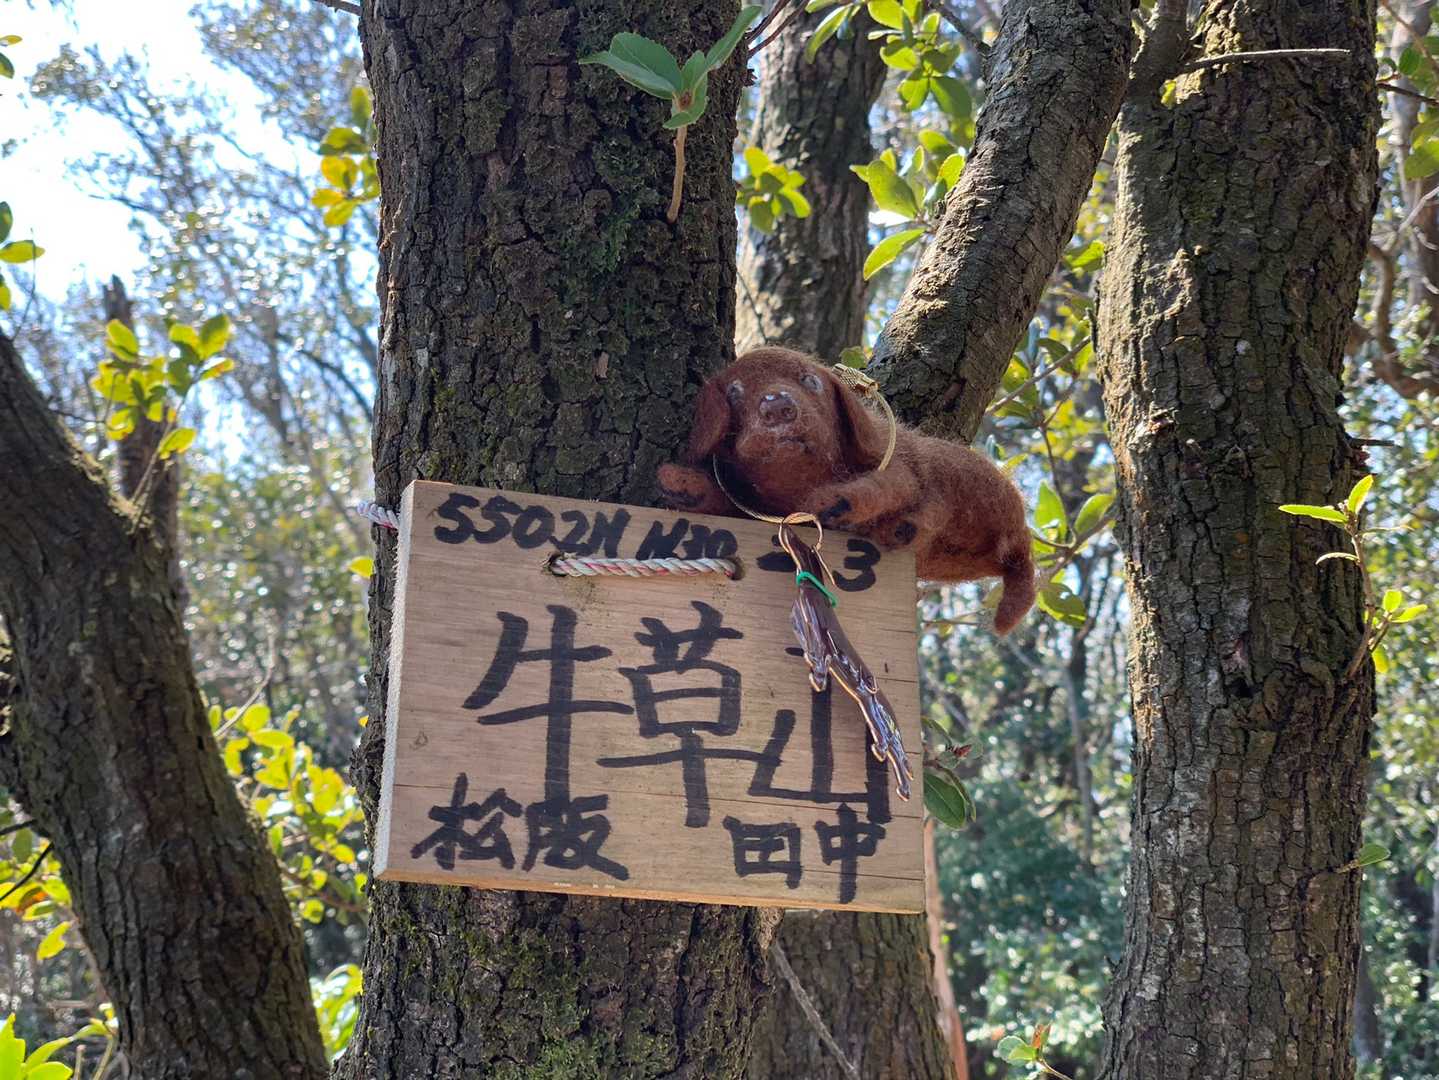 550.2M H30-3
牛草山
松阪 田中